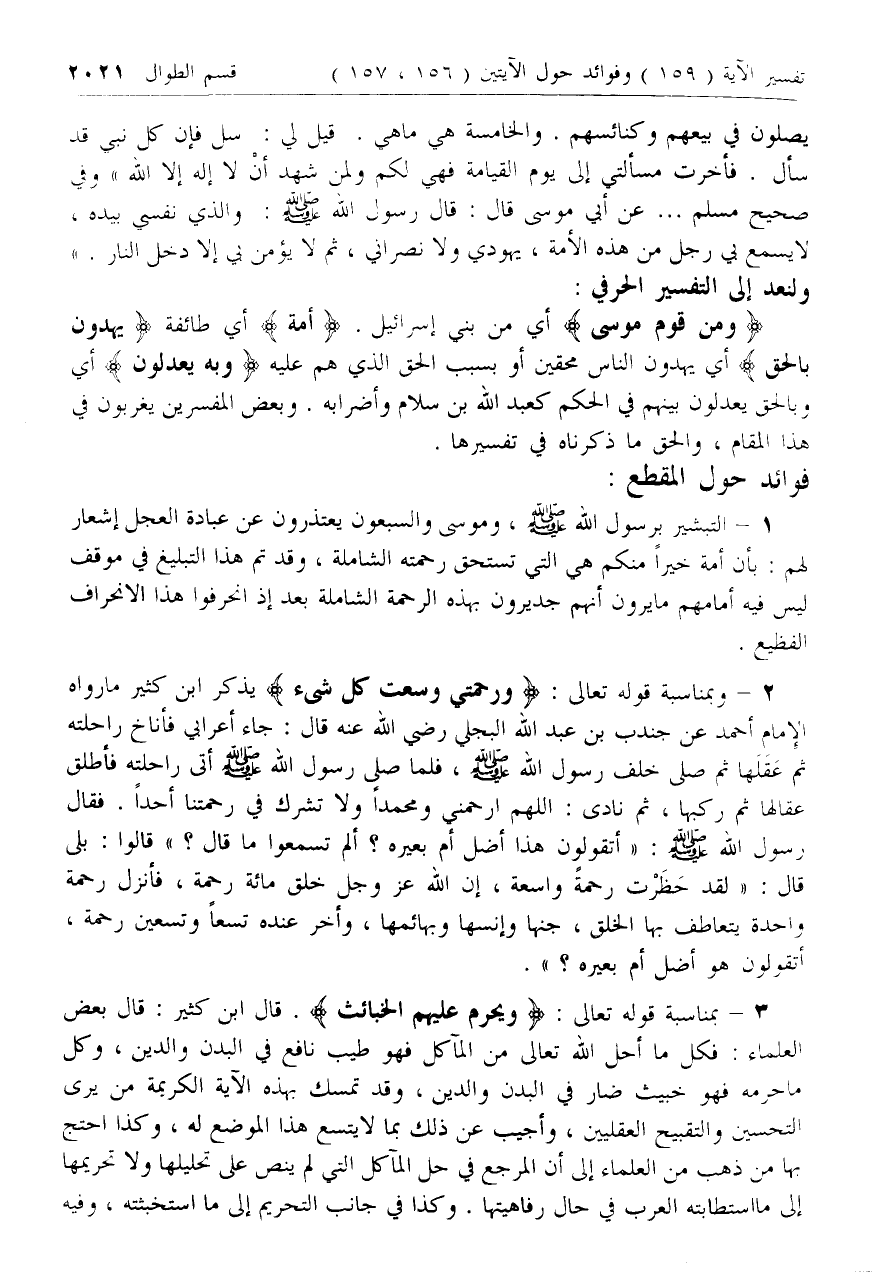 تفسير الآية ( ١٥٩ ) وفوائد حول الآيتين ( ١٥٦ ، ١٥٧ ) قسم الطوال ٢٠٢١
يصلون في بيعهم وكنائسهم . والخامسة هي ماهي . قيل لي : سل فإن كل نبي قد
سأل . فأخرت مسألتي إلى يوم القيامة فهي لكم ولمن شهد أنْ لا إله إلا الله » وفي
صحيح مسلم ... عن أبي موسى قال : قال رسول الله ﷺ : والذي نفسي بيده ،
لايسمع بي رجل من هذه الأمة ، يهودي ولا نصراني ، ثم لا يؤمن بي إلا دخل النار . »
ولنعد إلى التفسير الحرفي :
﴿ ومن قوم موسى ﴾ أي من بني إسرائيل . ﴿ أمة ﴾ أي طائفة ﴿ يهدون
بالحق ﴾ أي يهدون الناس محقين أو بسبب الحق الذي هم عليه ﴿ وبه يعدلون ﴾ أي
وبالحق يعدلون بينهم في الحكم كعبد الله بن سلام وأضرابه . وبعض المفسرين يغربون في
هذا المقام ، والحق ما ذكرناه في تفسيرها .
فوائد حول المقطع :
١ – التبشير برسول الله ﷺ ، وموسى والسبعون يعتذرون عن عبادة العجل إشعار
لهم : بأن أمة خيراً منكم هي التي تستحق رحمته الشاملة ، وقد تم هذا التبليغ في موقف
ليس فيه أمامهم مايرون أنهم جديرون بهذه الرحمة الشاملة بعد إذ انحرفوا هذا الانحراف
الفظيع .
٢ – وبمناسبة قوله تعالى : ﴿ ورحمتي وسعت كل شيء ﴾ يذكر ابن كثير مارواه
الإمام أحمد عن جندب بن عبد الله البجلي رضي الله عنه قال : جاء أعرابي فأناخ راحلته
ثم عَقَلَها ثم صلى خلف رسول الله ﷺ ، فلما صلى رسول الله ﷺ أتى راحلته فأطلق
عقالها ثم ركبها ، ثم نادى : اللهم ارحمني ومحمداً ولا تشرك في رحمتنا أحداً . فقال
رسول الله ﷺ : « أتقولون هذا أضل أم بعيره ؟ ألم تسمعوا ما قال ؟ » قالوا : بلى
قال : « لقد حَظَرْت رحمةً واسعة ، إن الله عز وجل خلق مائة رحمة ، فأنزل رحمة
واحدة يتعاطف بها الخلق ، جنها وإنسها وبهائمها ، وأخر عنده تسعاً وتسعين رحمة ،
أتقولون هو أضل أم بعيره ؟ » .
٣ – بمناسبة قوله تعالى : ﴿ ويحرم عليهم الخبائث ﴾ . قال ابن كثير : قال بعض
العلماء : فكل ما أحل الله تعالى من المآكل فهو طيب نافع في البدن والدين ، وكل
ماحرمه فهو خبيث ضار في البدن والدين ، وقد تمسك بهذه الآية الكريمة من يرى
التحسين والتقبيح العقليين ، وأجيب عن ذلك بما لايتسع هذا الموضع له ، وكذا احتج
بها من ذهب من العلماء إلى أن المرجع في حل المآكل التي لم ينص على تحليلها ولا تحريمها
إلى مااستطابته العرب في حال رفاهيتها . وكذا في جانب التحريم إلى ما استخبثته ، وفيه